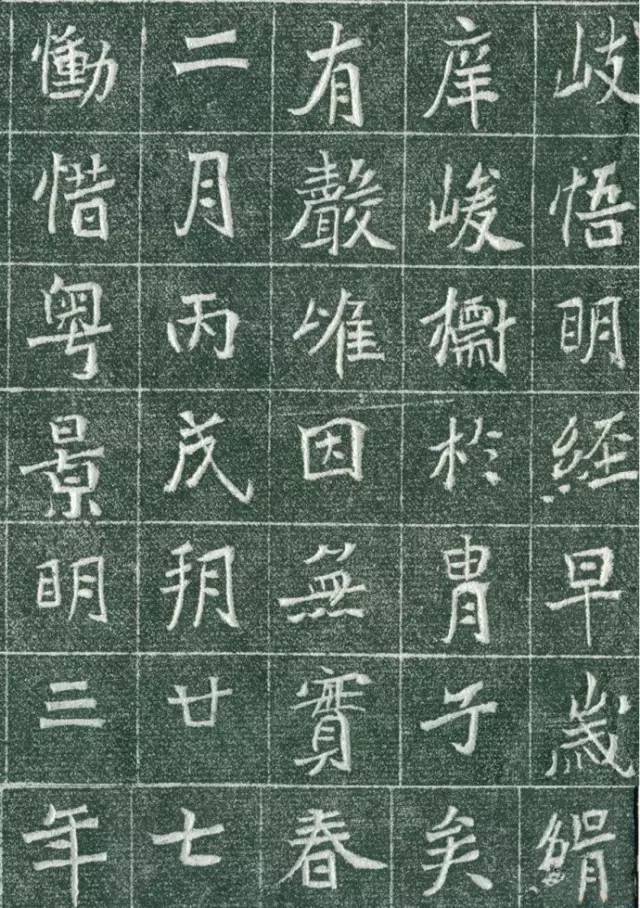 岐悟明經早歲
庠峻於冑子矣
有唯因無實春
二月丙戌朔廿七
慟惜粤景明三年